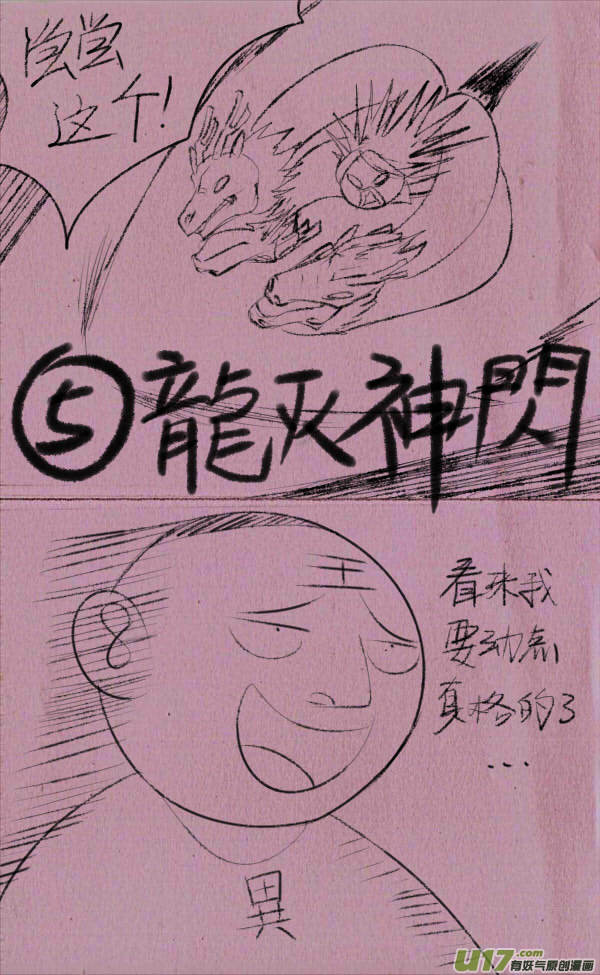 尝尝
这个!
⑤龍灭神閃
王
看来我
要动点
真格的了
...
異
U17.com
有妖气原创漫画